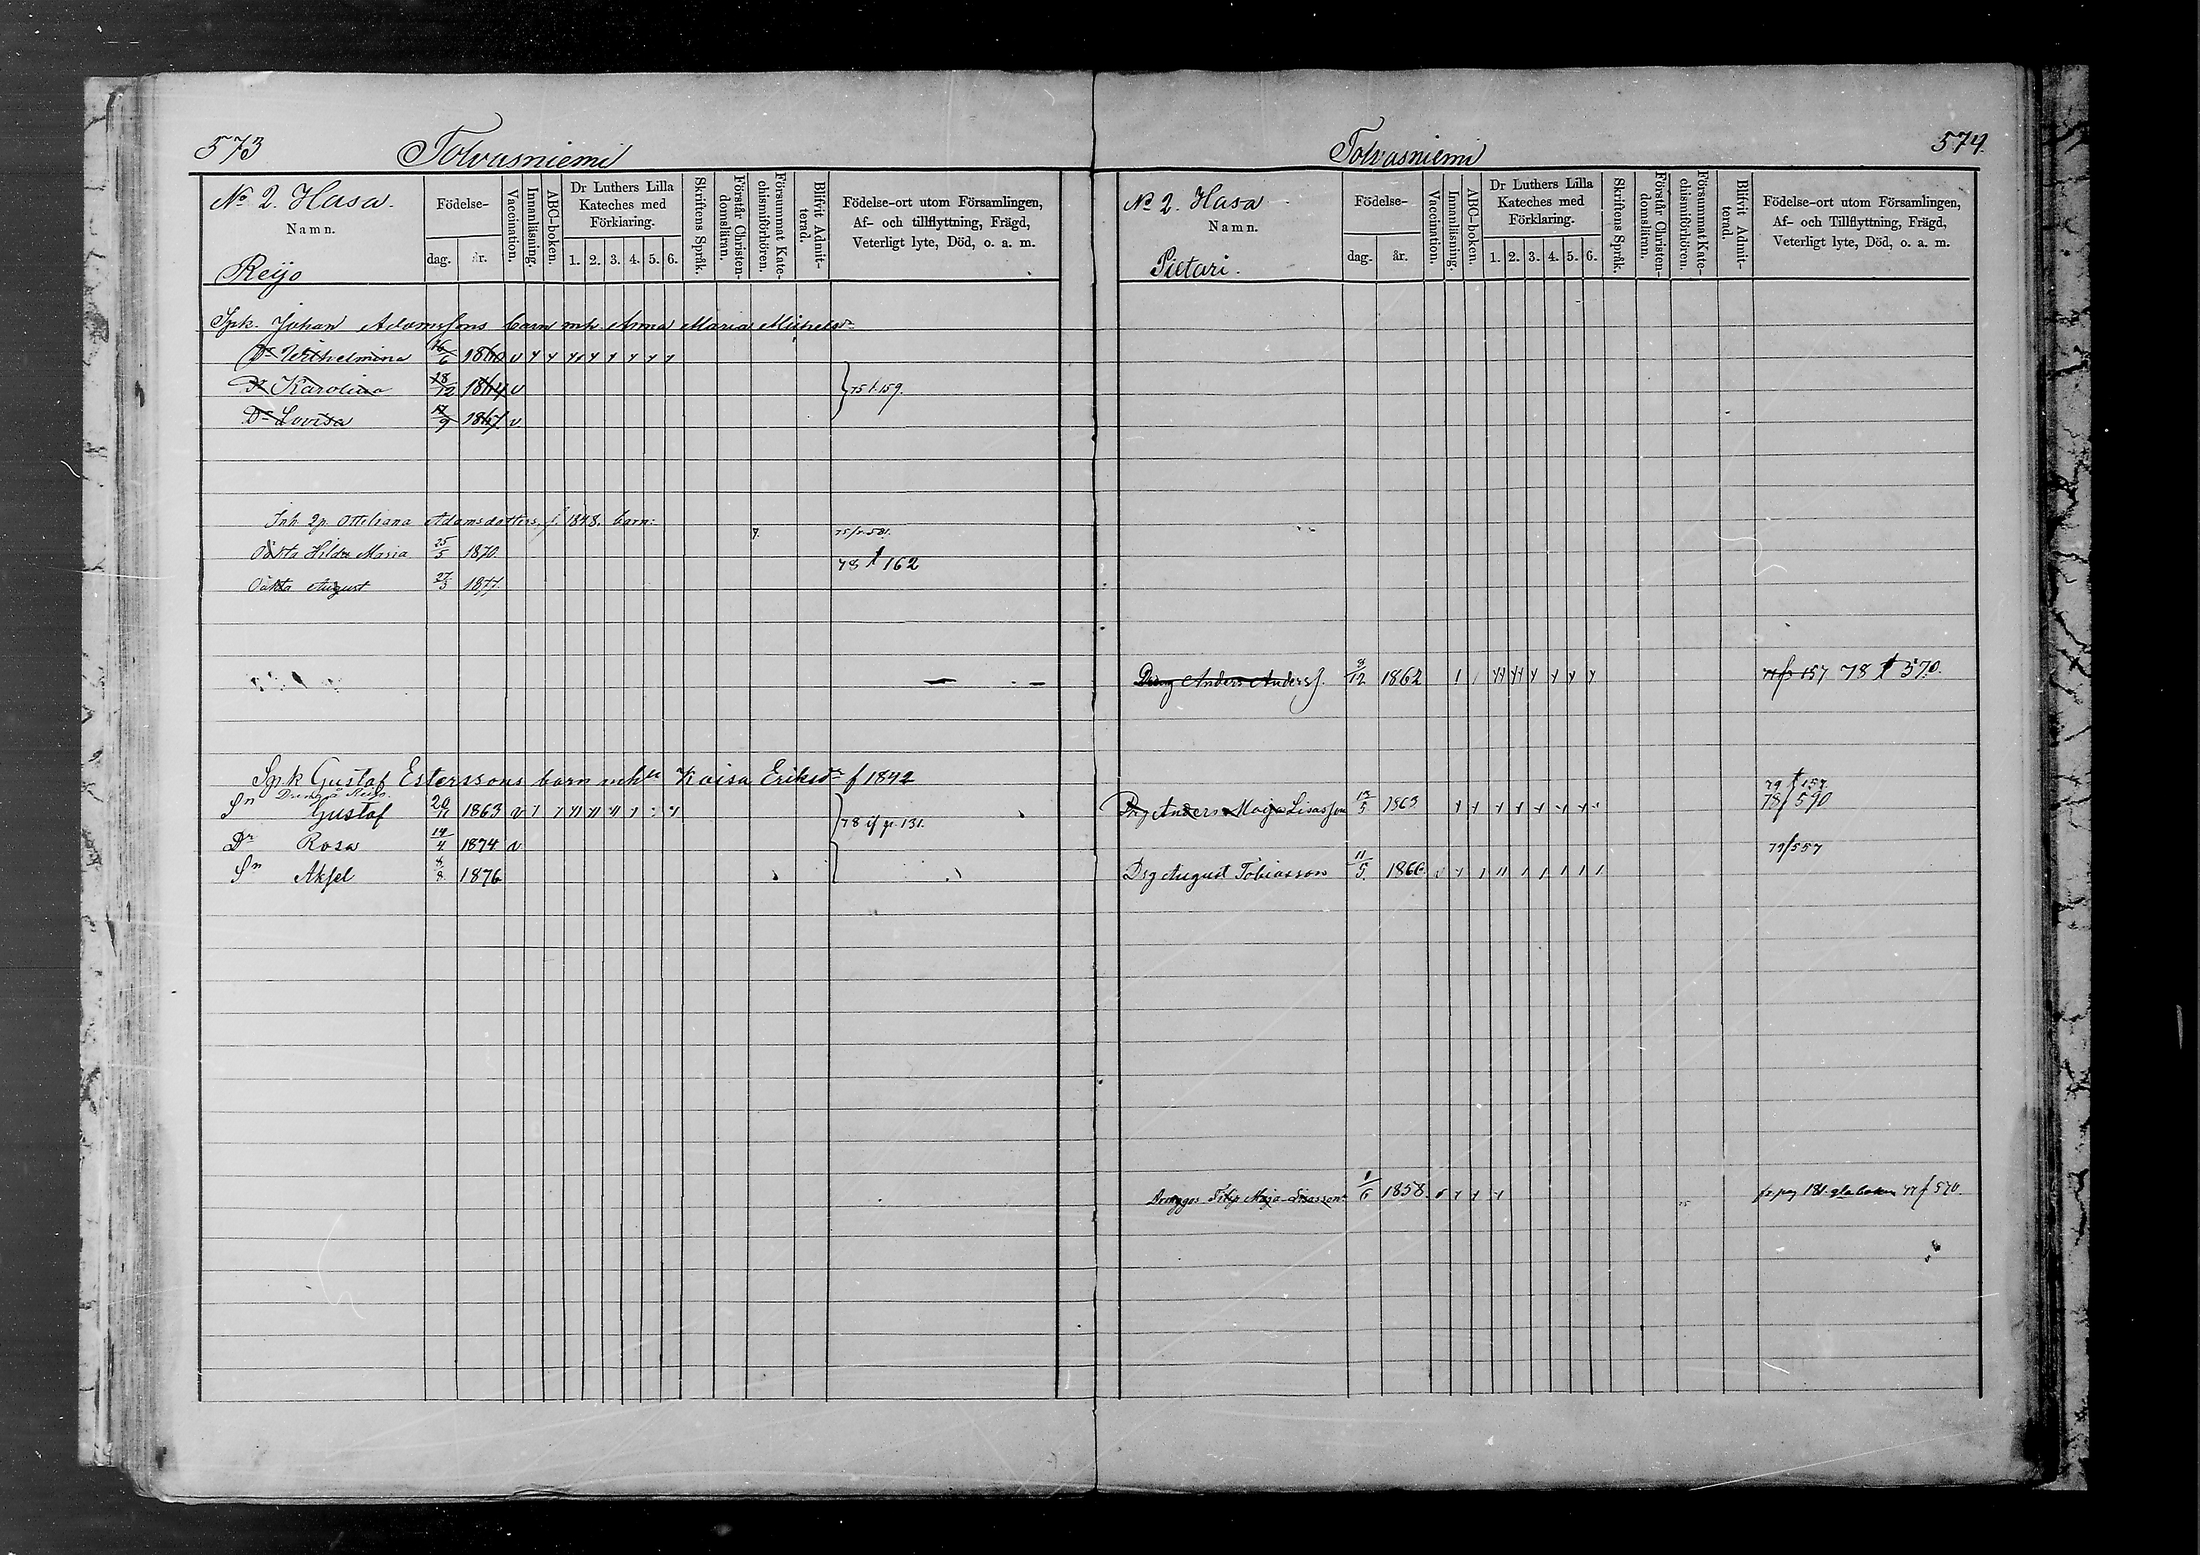 573 Tolvasniemi
No 2. Hasa.
Namn.
Reijo
Födelse-
dag. år.
Vaccination.
Innanläsning.
ABC-boken.
Dr Luthers Lilla
Kateches med
Förklaring.
1. 2. 3. 4. 5. 6.
Skriftens Språk.
Förstår Christen-
domsläran.
Försummat Kate-
chismiförhören.
Blifvit Admit-
terad.
Födelse-ort utom Församlingen,
Af- och tillflyttning, Frägd,
Veterligt lyte, Död, o. a. m.
Spk. Johan Adamssons barn mh Anna Maria Michelsdr
Dr Wilhelmina 16/6 1860 v
Dr Karolina 18/12 1864 v } 75 f 159.
Dr Lovisa 17/9 1867. v
Inh. Ottiliana Adamsdotters f. 1848. barn:
Oäkta Hilda Maria 25/5 1870.
78 f 162
Oäkta August 27/3 1877.
Spk Gustaf Esterssons barn mh Kaisa Eriksdr f 1842
Sn Gustaf 20/11 1863 v
78 if p. 131.
Dr Rosa 14/4 1874 v
Sn Aksel 8/8 1876
574.
Tolvasniemi
No 2. Hasa
Namn.
Pietari.
Födelse-
dag. år.
Vaccination.
Innanläsning.
ABC-boken.
Dr Luthers Lilla
Kateches med
Förklaring.
1. 2. 3. 4. 5. 6.
Skriftens Språk.
Förstår Christen-
domsläran.
Försummat Kate-
chismiförhören.
Blifvit Admit-
terad.
Födelse-ort utom Församlingen,
Af- och Tillflyttning, Frägd,
Veterligt lyte, Död, o. a. m.
Dreng Anders Anderss. 9/12 1862 157 78 f 570.
79 f 157
Drg Anders Maija Lisasson 13/5 1863 78 f 590
79/557
Drg August Tobiasson 11/5 1866 v
Filip Maja Lisasson 1/6 1858. 77 f 570.